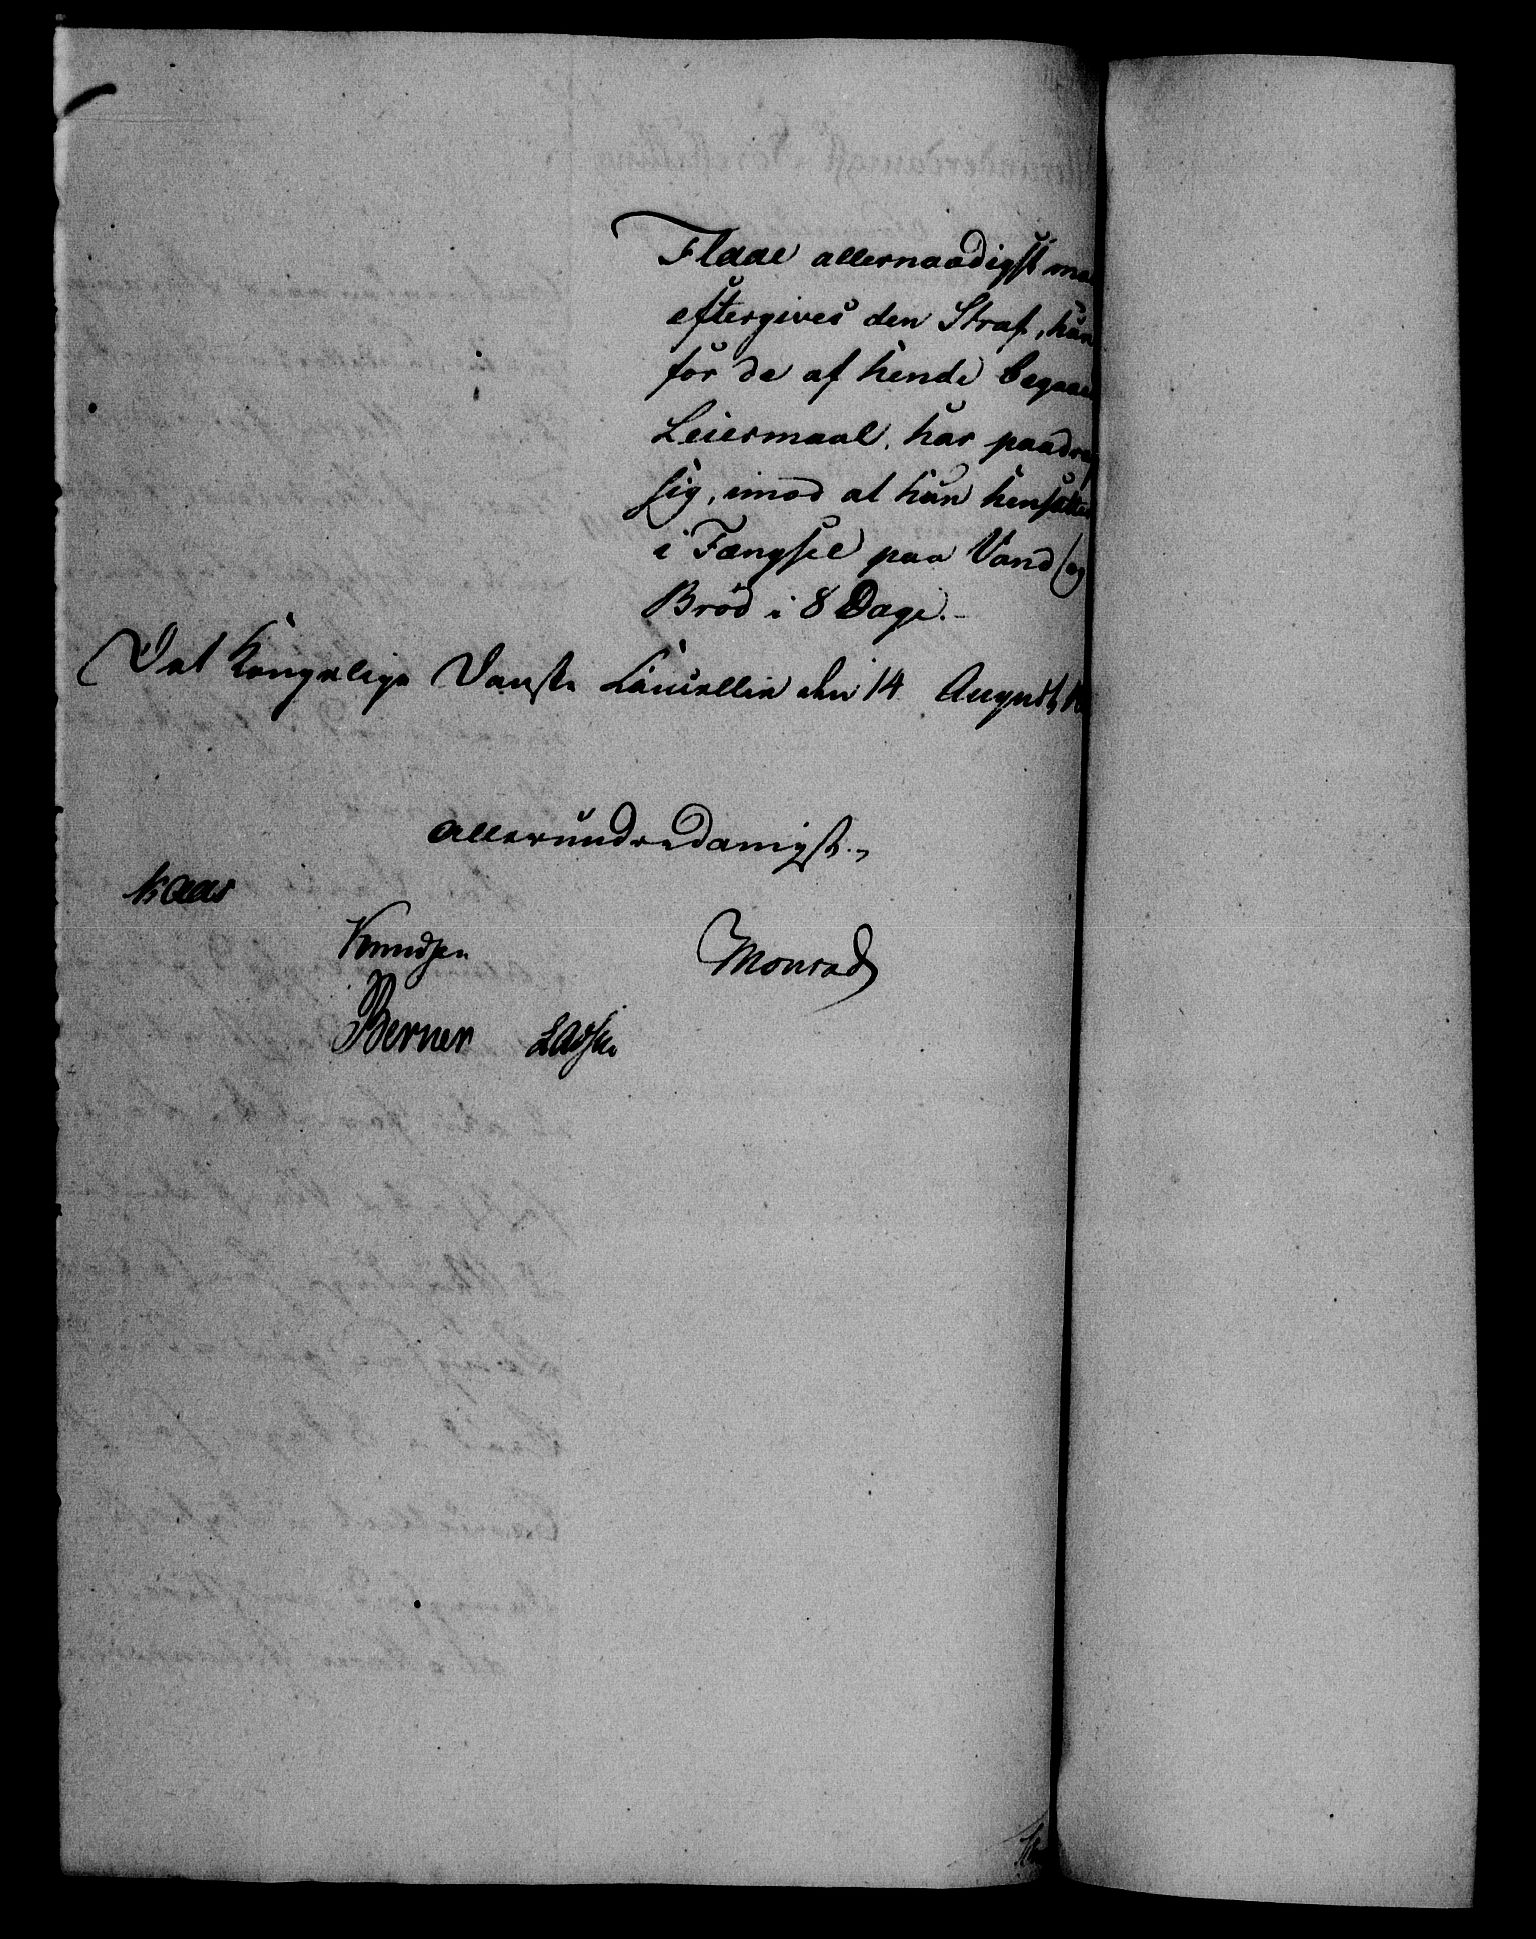 Flaae allernaadigst maa
eftergives den Straf, hun
for de af hende begaae
Leiermaal, har paadrag
sig, imod at hun hensættes
i Fængsel paa Vand og
Brød i 8 Dage.
Det Kongelige Danske Cancellie den 14 August, 18
Allerunderdanigst.
Kaas
Knudsen Monrad
Berner Lassen